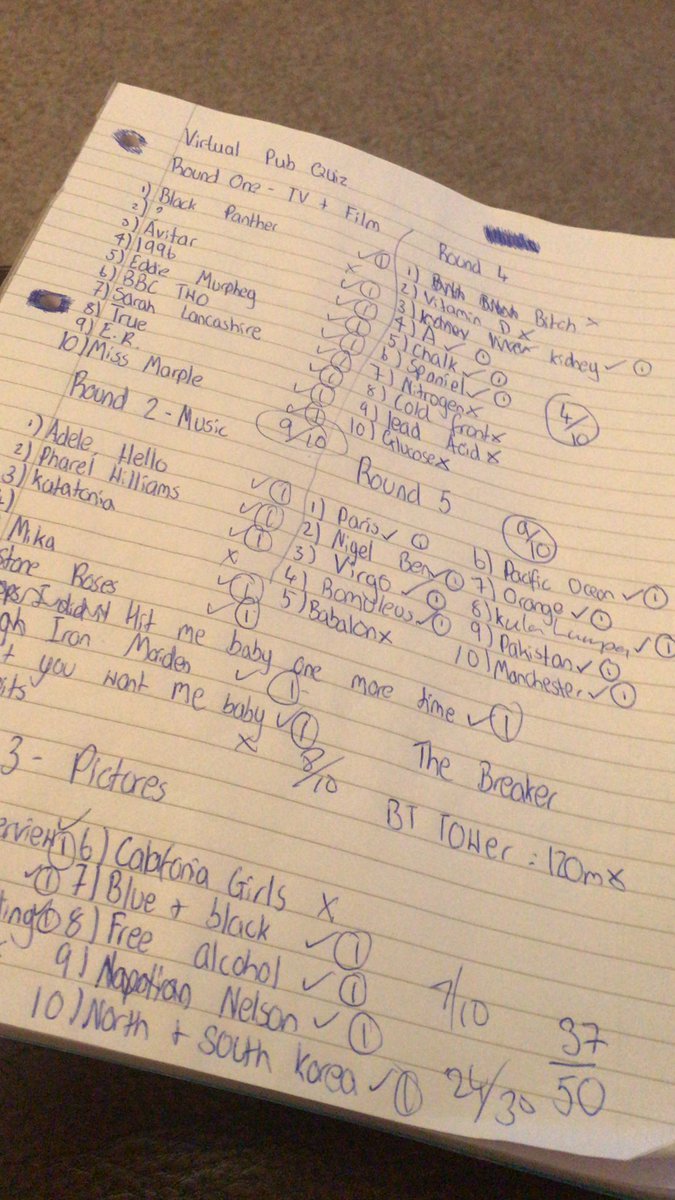 Virtual Pub Quiz
Round One - TV + Film
1) Black Panther ✓①
2) ? x
3) Avitar ✓①
4) 1996 ✓①
5) Eddie Murpheg ✓①
6) BBC TWO ✓①
7) Sarah Lancashire ✓①
8) True ✓①
9) E.R. ✓①
10) Miss Marple ✓①
9/10
Round 2 - Music
1) Adele, Hello ✓①
2) Pharel Williams ✓①
3) Katatonia ✓①
x
Mika ✓①
Stone Roses ✓①
Hit me baby one more time ✓①
Iron Maiden ✓①
you want me baby ✓①
x
8/10
3 - Pictures
✓①
✓①
✓①
6) Catatonia Girls x
7) Blue + black ✓①
8) Free alcohol ✓①
9) Napolian Nelson ✓①
10) North + South Korea ✓①
7/10
24/30
Round 4
1) Bitch x
2) Vitamin D x
3) Kidney kidney ✓①
4) A ✓①
5) Chalk ✓①
6) Spaniel ✓①
7) Nitrogen x
8) Cold front x
9) lead Acid x
10) Glucose x
4/10
Round 5
9/10
1) Paris ✓①
2) Nigel Ben ✓①
3) Virgo ✓①
4) Romuleus ✓①
5) Babalon x
6) Pacific Ocean ✓①
7) Orange ✓①
8) Kula Lumper ✓①
9) Pakistan ✓①
10) Manchester ✓①
The Breaker
BT Tower : 120m x
37
50